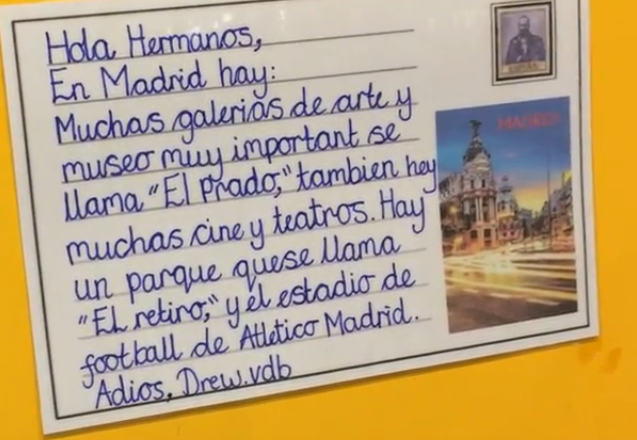 Hola Hermanos,
En Madrid hay:
Muchas galerias de arte y
museo muy important se
llama "El Prado," tambien hey
muchas cine y teatros. Hay
un parque quese llama
"El retiro," y el estadio de
football de Atletico Madrid.
Adios, Drew.vdb
MADRID